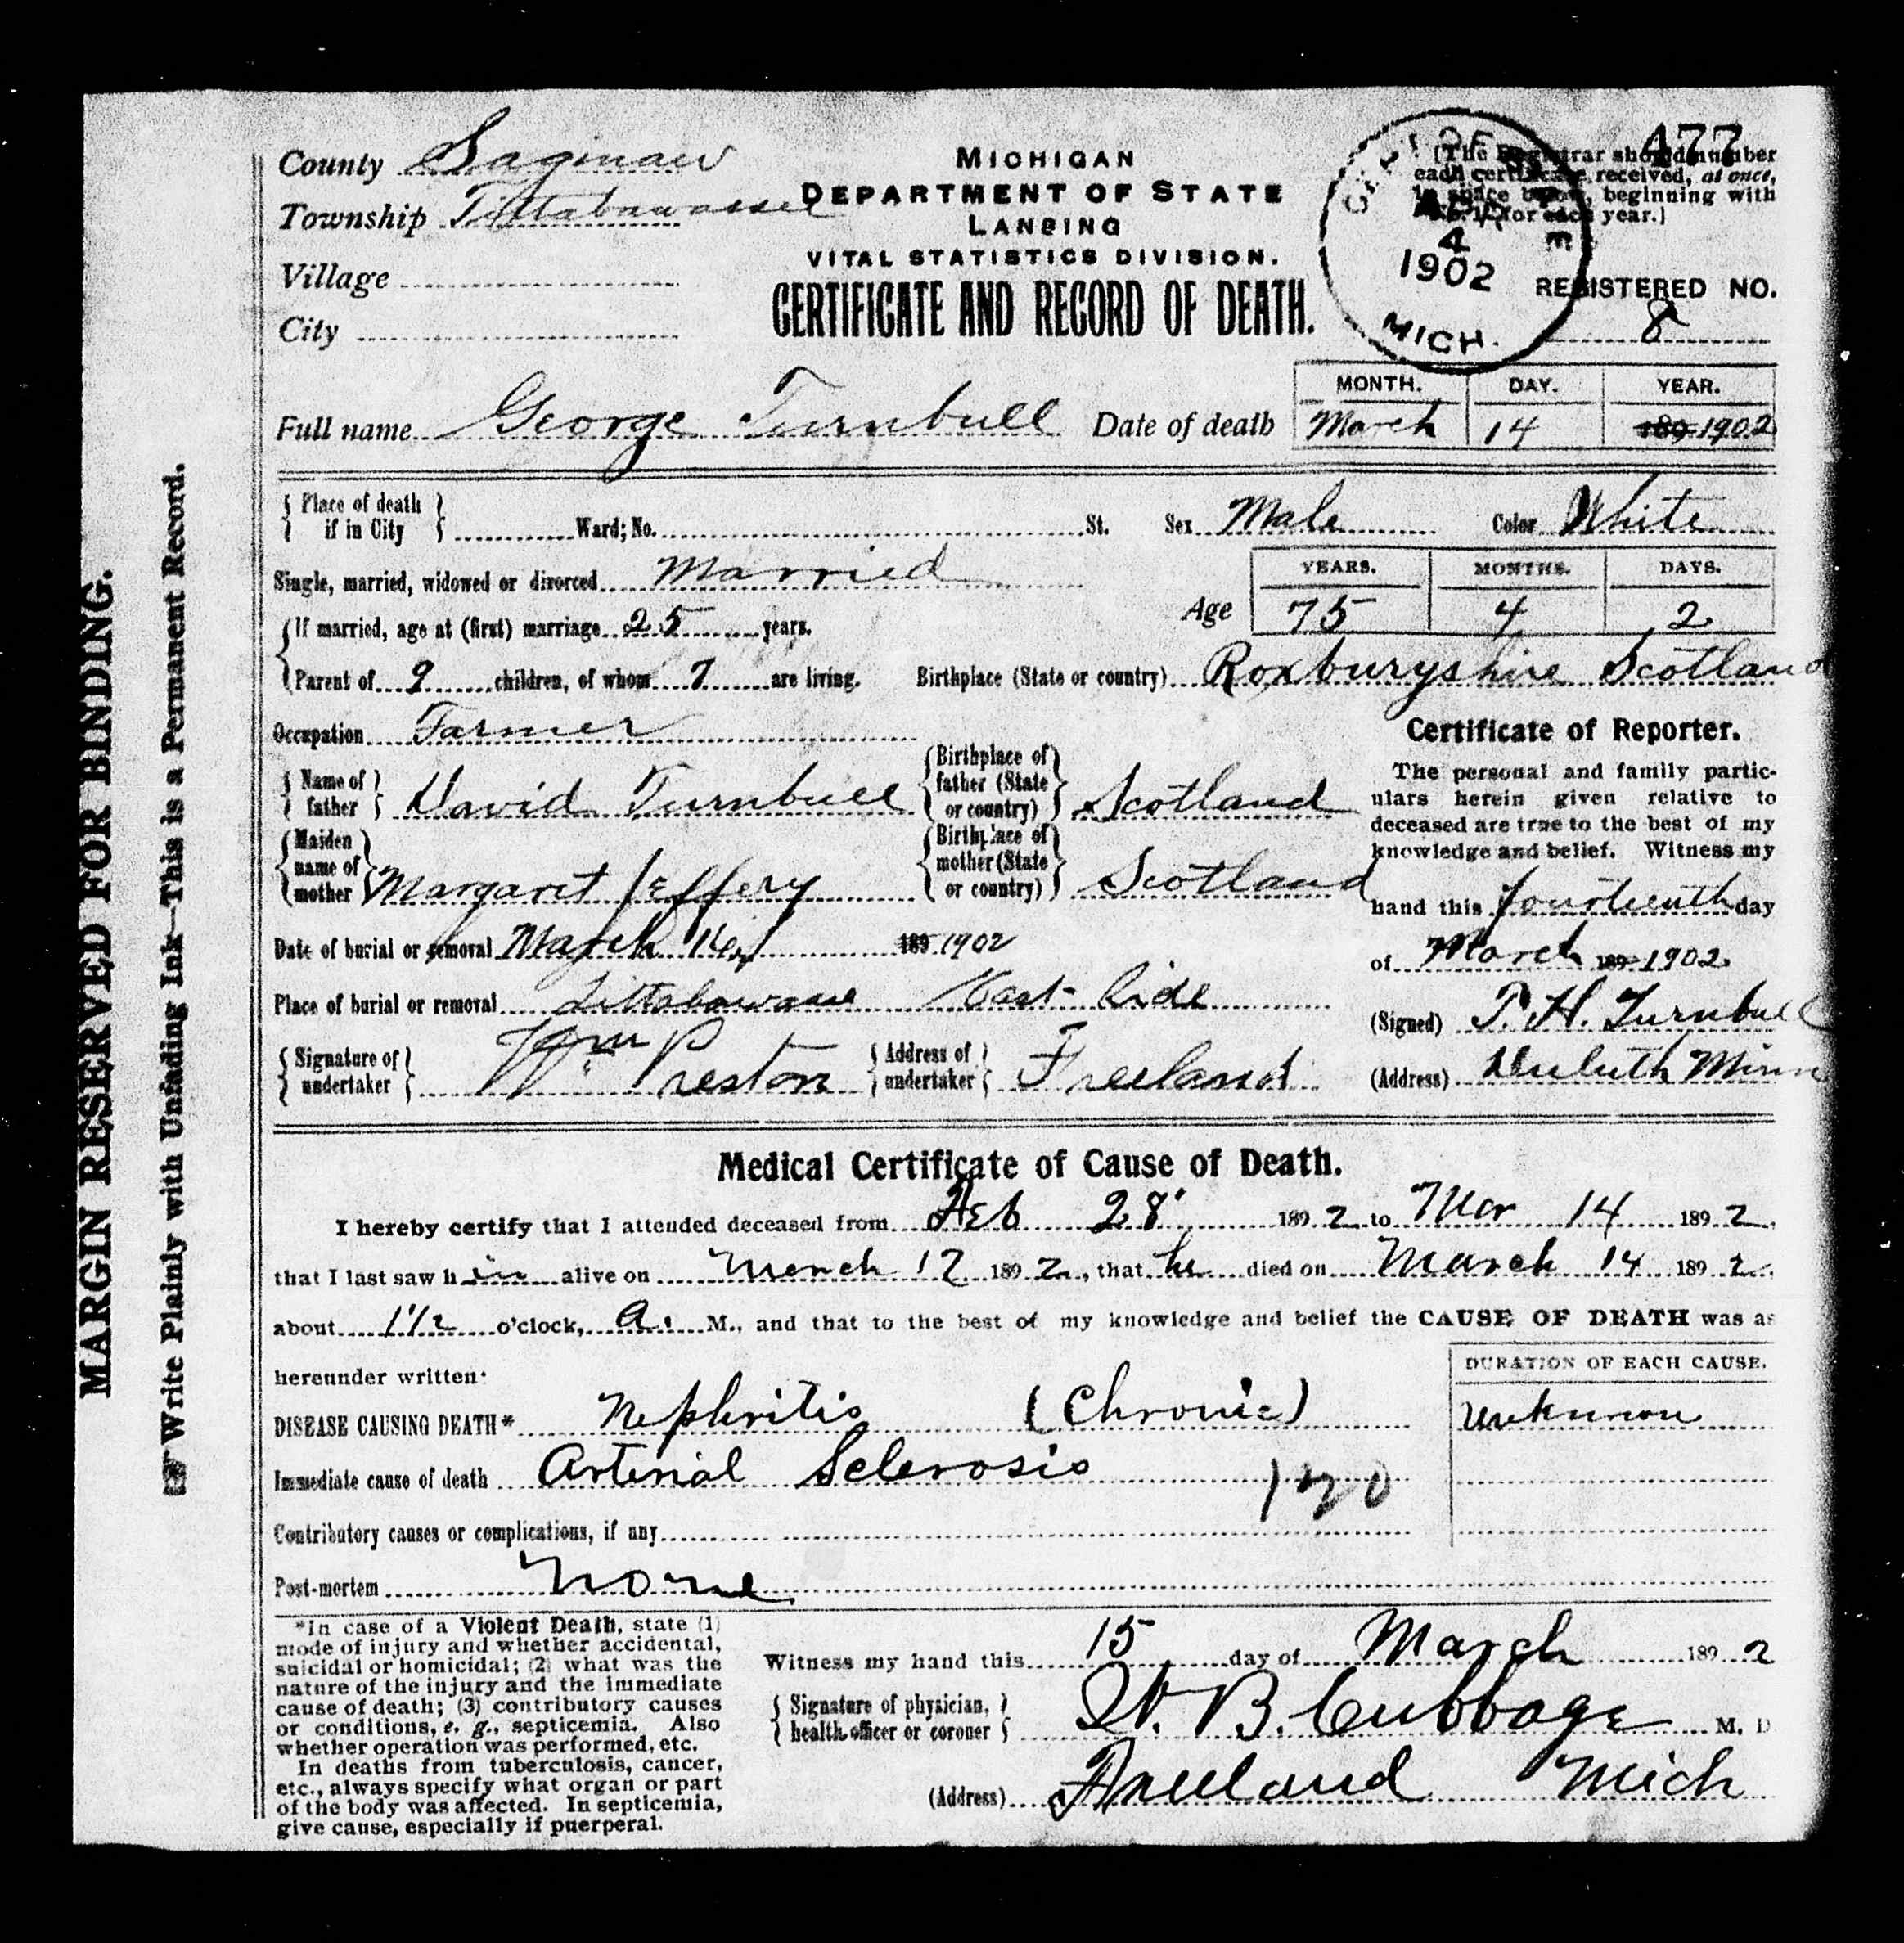 MARGIN RESERVED FOR BINDING.
Write Plainly with Unfading Ink—This is a Permanent Record.
County Saginaw
Township Tittabawassee
Village
City
MICHIGAN
DEPARTMENT OF STATE
LANSING
VITAL STATISTICS DIVISION.
CERTIFICATE AND RECORD OF DEATH.
477
[The Registrar should number
each certificate received, at once,
in space below, beginning with
No. 1, for each year.]
4
1902
MICH.
REGISTERED NO.
8
Full name George Turnbull Date of death
MONTH. DAY. YEAR.
March 14 189 1902
Place of death if in City Ward; No. St. Sex Male Color White
Single, married, widowed or divorced Married
YEARS. MONTHS. DAYS.
Age 75 4 2
If married, age at (first) marriage 25 years.
Parent of 9 children, of whom 7 are living. Birthplace (State or country) Roxburyshire Scotland
Occupation Farmer
Name of father David Turnbull Birthplace of father (State or country) Scotland
Maiden name of mother Margaret Jeffery Birthplace of mother (State or country) Scotland
Date of burial or removal March 16, 189 1902
Place of burial or removal Tittabawasse East Side
Signature of undertaker Wm Preston Address of undertaker Freeland
Certificate of Reporter.
The personal and family partic-
ulars herein given relative to
deceased are true to the best of my
knowledge and belief. Witness my
hand this fourteenth day
of March 189 1902
(Signed) T. H. Turnbull
(Address) Duluth Minn
Medical Certificate of Cause of Death.
I hereby certify that I attended deceased from Feb 28 189 2 to Mar 14 189 2,
that I last saw h im alive on March 12 189 2, that he died on March 14 189 2,
about 1 1/2 o'clock, a. M., and that to the best of my knowledge and belief the CAUSE OF DEATH was as
hereunder written:
DURATION OF EACH CAUSE.
DISEASE CAUSING DEATH* Nephritis (Chronic) Unknown
Immediate cause of death Arterial Sclerosis
120
Contributory causes or complications, if any
Post-mortem None
*In case of a Violent Death, state (1)
mode of injury and whether accidental,
suicidal or homicidal; (2) what was the
nature of the injury and the immediate
cause of death; (3) contributory causes
or conditions, e. g., septicemia. Also
whether operation was performed, etc.
In deaths from tuberculosis, cancer,
etc., always specify what organ or part
of the body was affected. In septicemia,
give cause, especially if puerperal.
Witness my hand this 15 day of March 189 2
Signature of physician, health officer or coroner W. B. Cubbage M. D
(Address) Freeland Mich